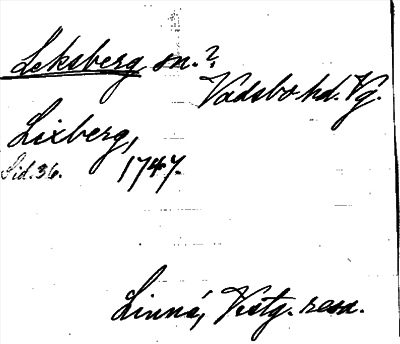 Leksberg sn.?
Vadsbo hd. Vg.
Lixberg,
Sid. 36. 1747.
Linné, Vestg. resa.